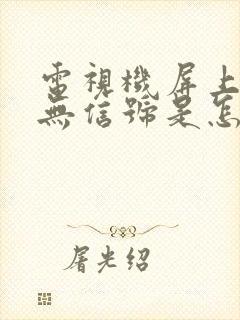 電視機屏上
無信號是怎
屠光绍